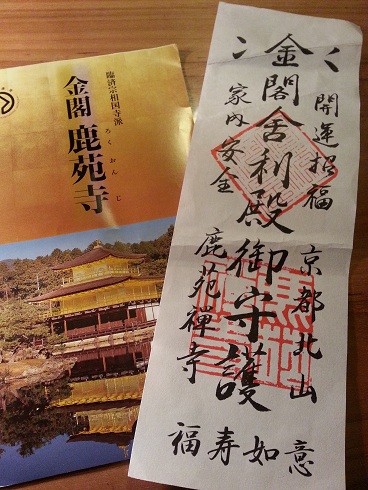 臨済宗相国寺派
金閣 鹿苑寺
ろくおんじ
開運招福
京都北山
金閣舎利殿御守護
家内安全
鹿苑禅寺
如意
福寿